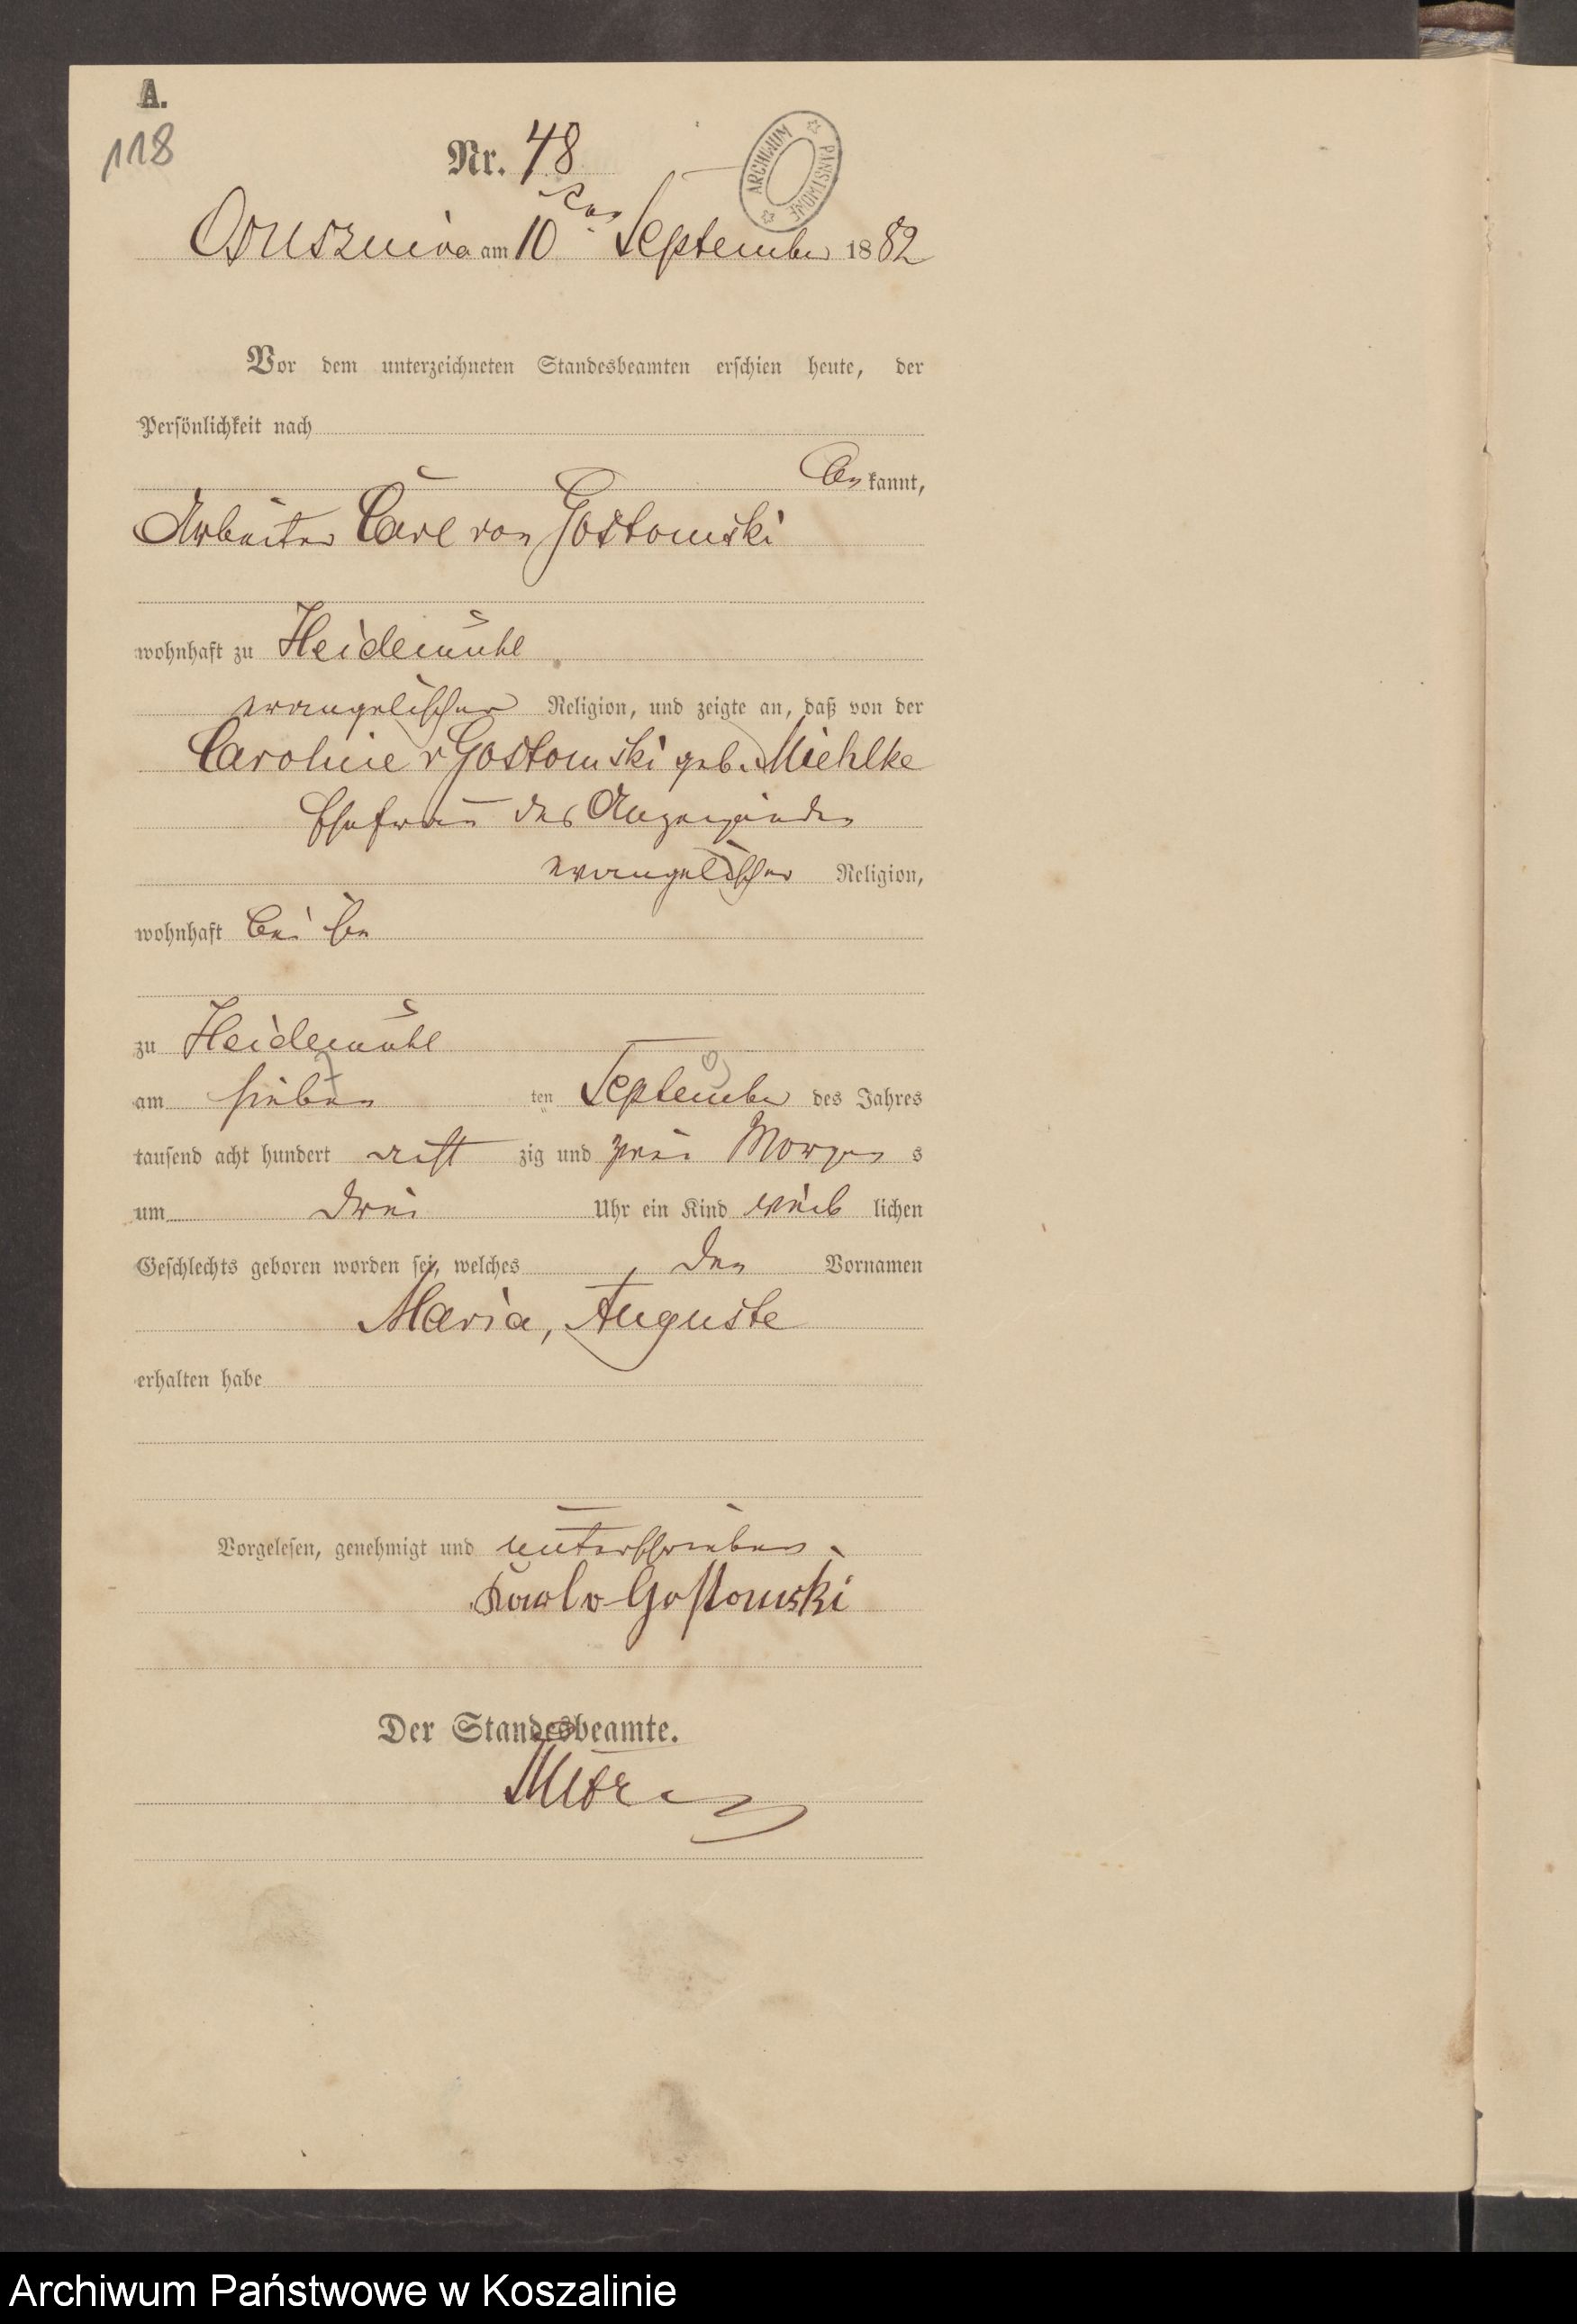 A.
118
Nr. 48
ARCHIWUM PAŃSTWOWE
Ossuszniva am 10ten September 1882
Vor dem unterzeichneten Standesbeamten erschien heute, der
Persönlichkeit nach
bekannt,
Arbeiter Carl von Gostomski
wohnhaft zu Heidemühl
evangelischer Religion, und zeigte an, daß von der
Caroline v Gostomski geb. Miehlke
Ehefrau des Anzeigenden
evangelischer Religion,
wohnhaft bei ihm
zu Heidemühl
am sieben ten September des Jahres
tausend acht hundert acht zig und zwei Morgen s
um drei Uhr ein Kind weib lichen
Geschlechts geboren worden sei, welches den Vornamen
Maria, Auguste
erhalten habe
Vorgelesen, genehmigt und unterschrieben.
Karl v Gostomski
Der Standesbeamte.
Archiwum Państwowe w Koszalinie